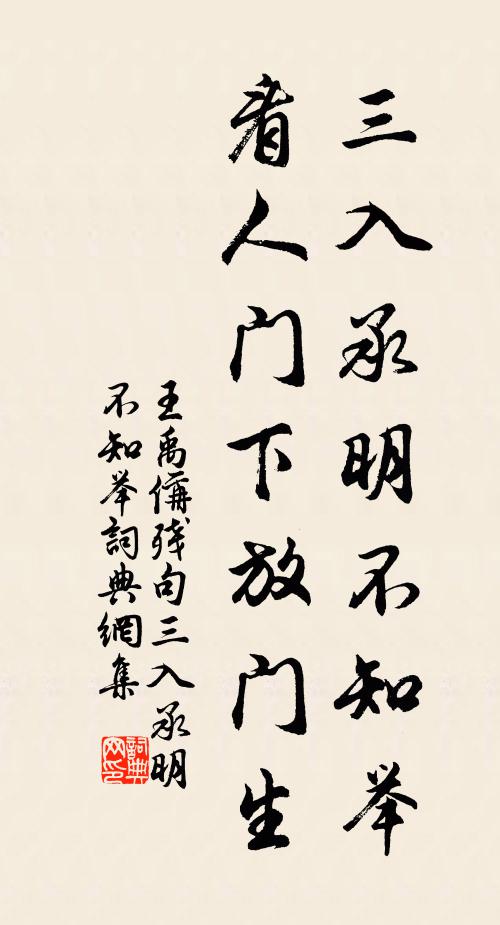 三入承明不知举
看人门下放门生
王禹偁残句三入承明
不知举詞典網集
詞典
网印